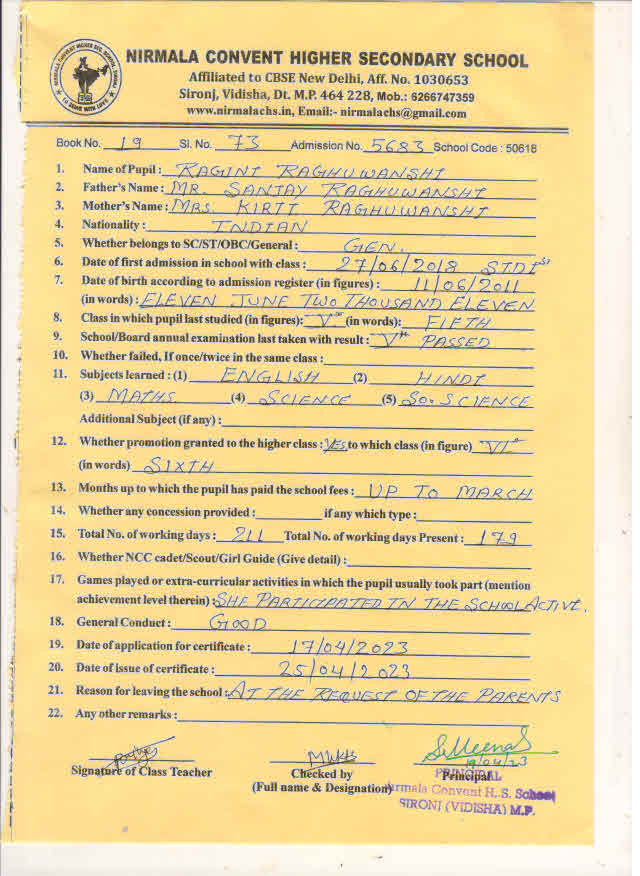 NIRMALA CONVENT HIGHER SECONDARY SCHOOL
Affiliated to CBSE New Delhi, Aff. No. 1030653
Sironj, Vidisha, Dt. M.P. 464 228, Mob.: 6266747359
www.nirmalachs.in, Email:- nirmalachs@gmail.com
Book No. 19 Sl. No. 73 Admission No. 5683 School Code : 50618
1. Name of Pupil : RAGINI RAGHUWANSHI
2. Father's Name : MR. SANJAY RAGHUWANSHI
3. Mother's Name : MRS. KIRTI RAGHUWANSHI
4. Nationality : INDIAN
5. Whether belongs to SC/ST/OBC/General : GEN.
6. Date of first admission in school with class : 27/06/2018 STD I st
7. Date of birth according to admission register (in figures) : 11/06/2011
(in words) : ELEVEN JUNE TWO THOUSAND ELEVEN
8. Class in which pupil last studied (in figures): V th (in words): FIFTH
9. School/Board annual examination last taken with result : V th PASSED
10. Whether failed, If once/twice in the same class :
11. Subjects learned : (1) ENGLISH (2) HINDI
(3) MATHS (4) SCIENCE (5) SO. SCIENCE
Additional Subject (if any) :
12. Whether promotion granted to the higher class : YES to which class (in figure) VI th
(in words) SIXTH
13. Months up to which the pupil has paid the school fees : UP TO MARCH
14. Whether any concession provided : if any which type :
15. Total No. of working days : 211 Total No. of working days Present : 179
16. Whether NCC cadet/Scout/Girl Guide (Give detail) :
17. Games played or extra-curricular activities in which the pupil usually took part (mention
achievement level therein) : SHE PARTICIPATED IN THE SCHOOL ACTIVE.
18. General Conduct : GOOD
19. Date of application for certificate : 17/04/2023
20. Date of issue of certificate : 25/04/2023
21. Reason for leaving the school : AT THE REQUEST OF THE PARENTS
22. Any other remarks :
19/04/23
Signature of Class Teacher Checked by Principal
(Full name & Designation)
PRINCIPAL
Nirmala Convent H. S. School
SIRONJ (VIDISHA) M.P.